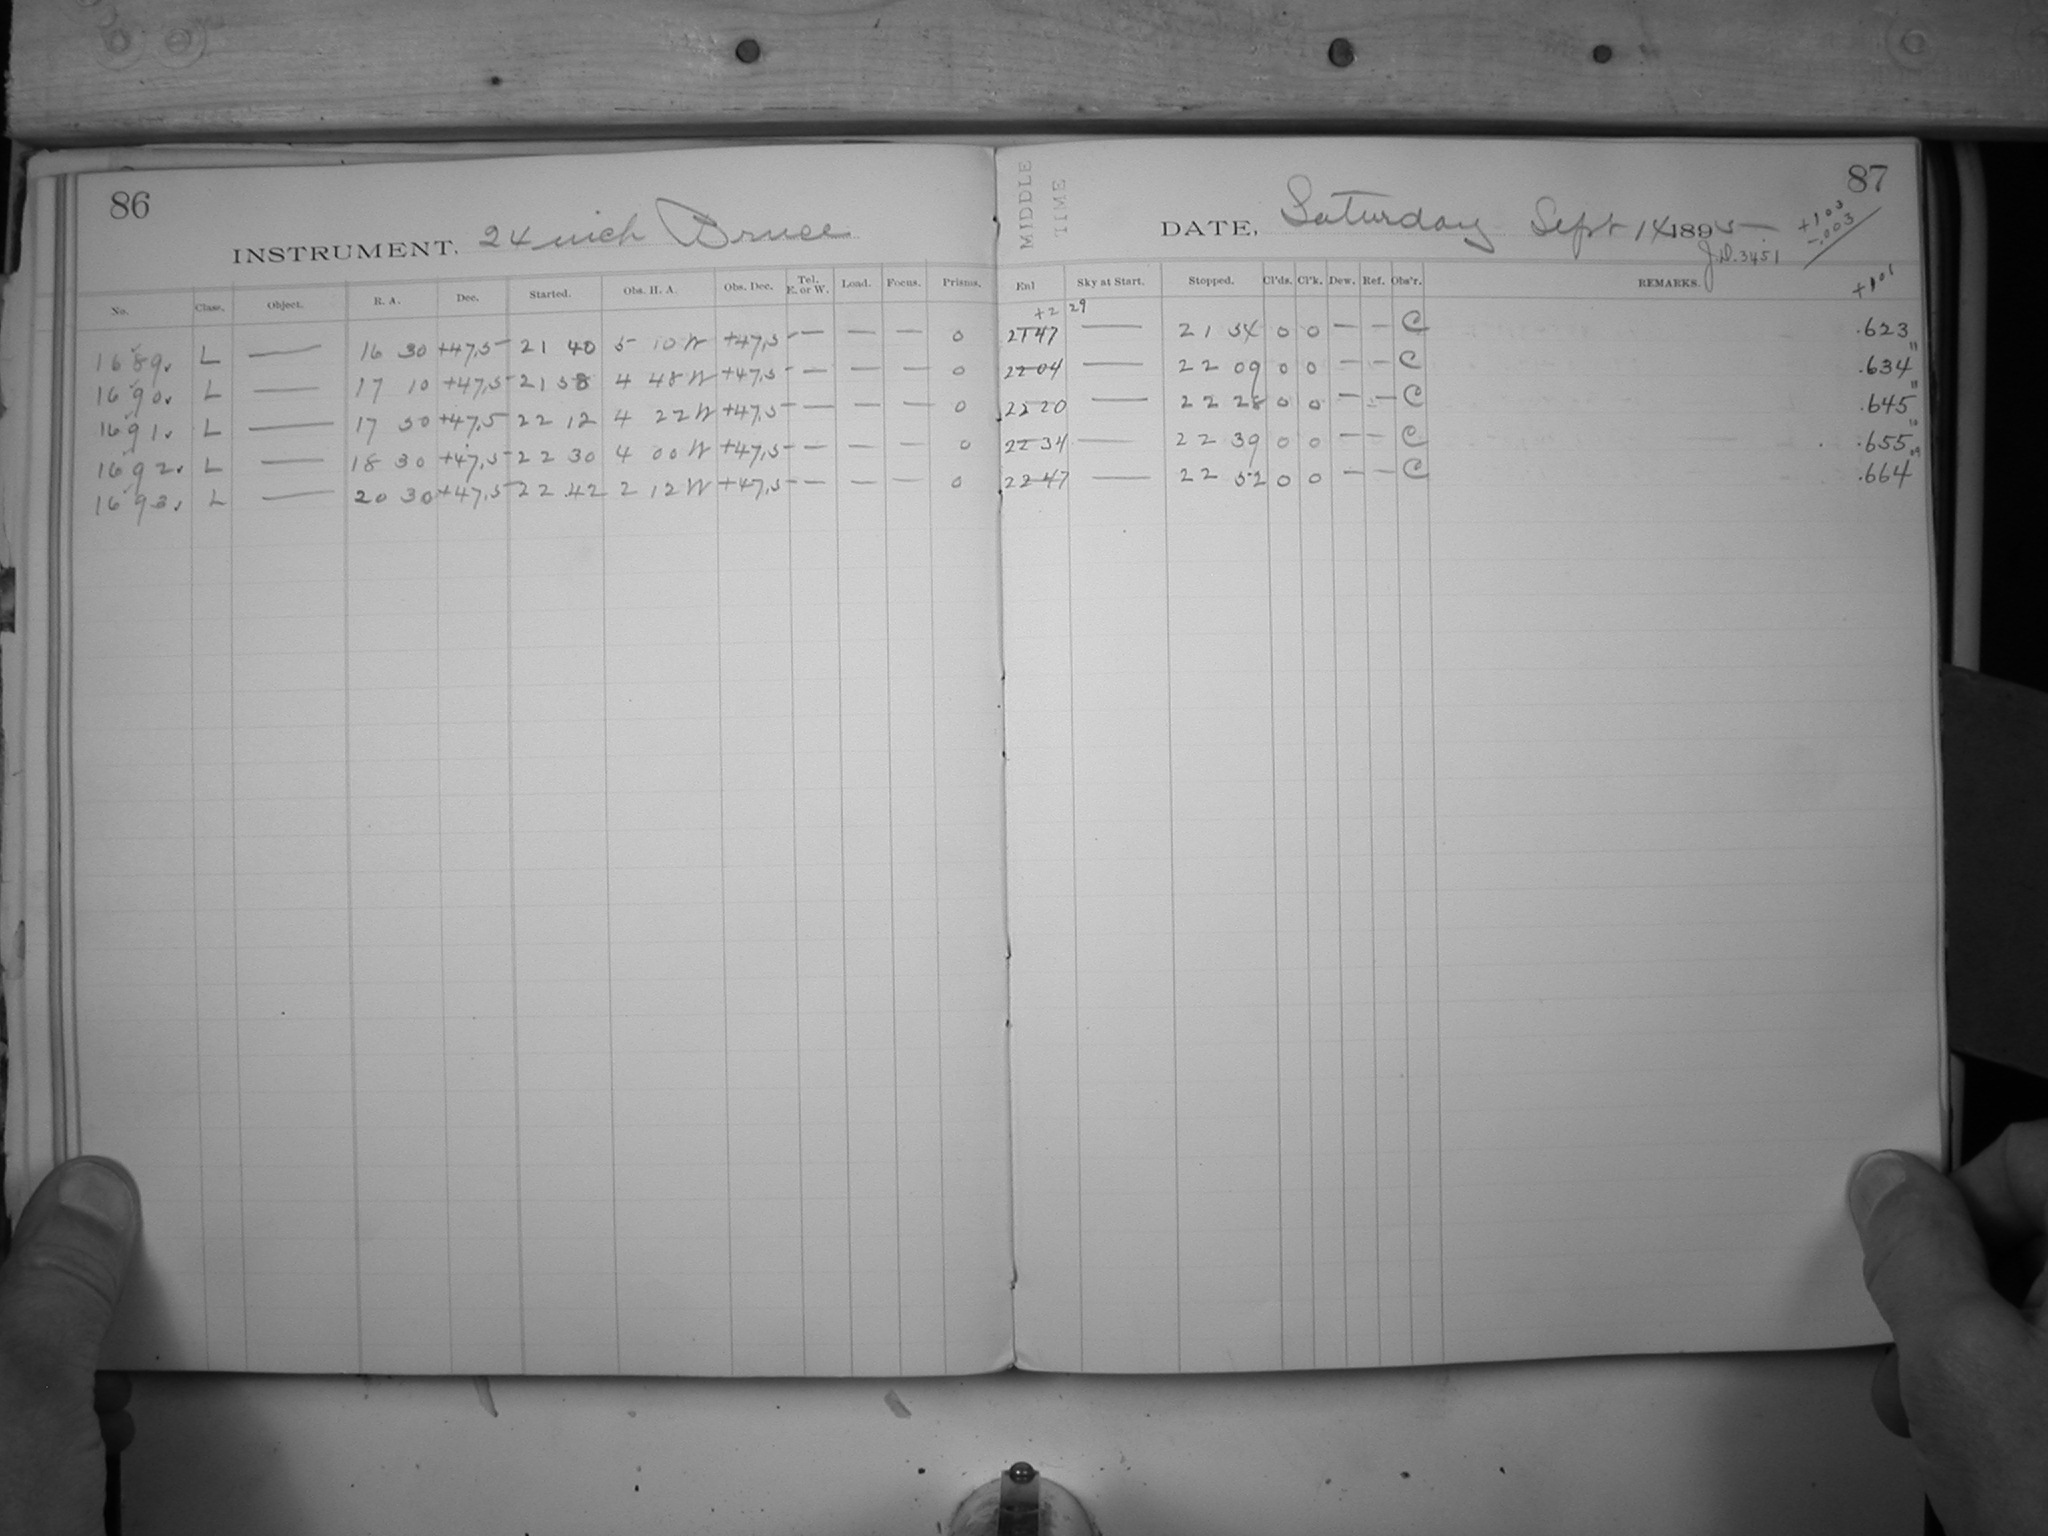 86
INSTRUMENT. 24 inch Bruce
No. Class. Object. R. A. Dec. Started. Obs. H. A. Obs. Dec. Tel. E. or W. Load. Focus. Prisms.
1689. L — 16 30 +47,5 21 40 5 10 W +47,5 — — — 0
1690. L — 17 10 +47,5 21 58 4 48 W +47,5 — — — 0
1691. L — 17 50 +47,5 22 12 4 22 W +47,5 — — — 0
1692. L — 18 30 +47,5 22 30 4 00 W +47,5 — — — 0
1693. L — 20 30 +47,5 22 42 2 12 W +47,5 — — — 0
87
MIDDLE TIME
DATE, Saturday Sept 14 1895
+103
-.003
J.D. 3451
+101
Exl Sky at Start. Stopped. Cl'ds. Cl'k. Dew. Ref. Obs'r. REMARKS.
+2 29
2147 — 21 54 0 0 — — C .623
11
2204 — 22 09 0 0 — — C .634
11
2220 — 22 28 0 0 — — C .645
10
2234 — 22 39 0 0 — — C .655
09
2247 — 22 52 0 0 — — C .664